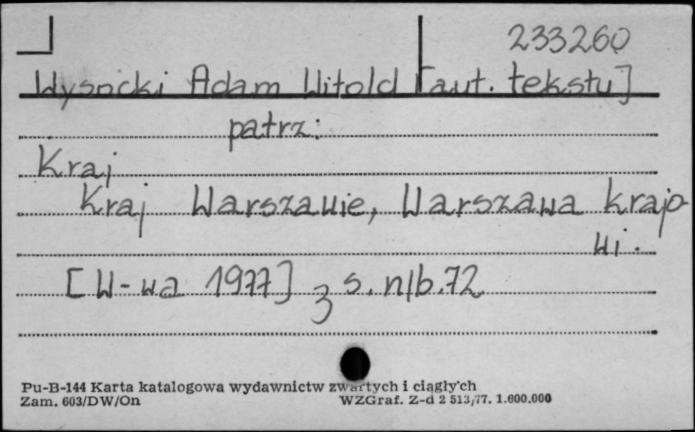 233260
Wysocki Adam Witold [aut. tekstu]
patrz:
Kraj
Kraj Warszawie, Warszawa krajo-
wi.
[W-wa 1977] s. nlb. 72
3
Pu-B-144 Karta katalogowa wydawnictw zwartych i ciągłych
Zam. 603/DW/On WZGraf. Z-d 2 513/77. 1.600.000